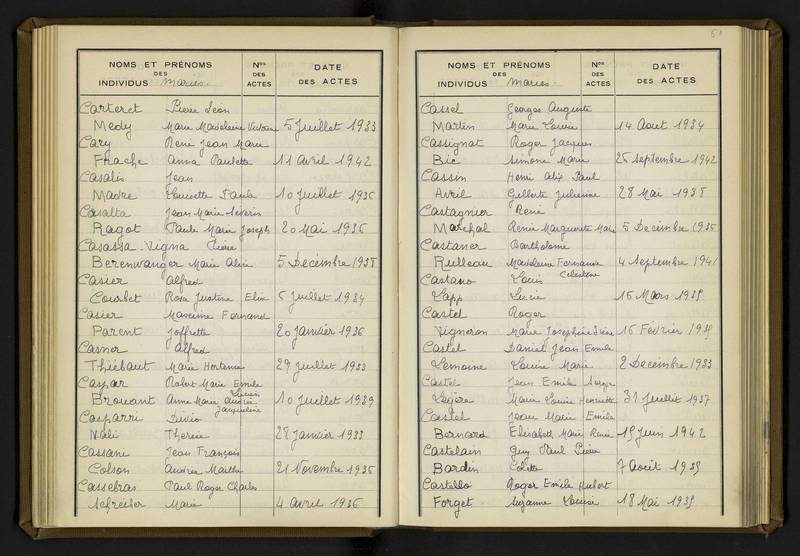 NOMS ET PRÉNOMS
DES
INDIVIDUS Mariés.
Nos
DES
ACTES
DATE
DES ACTES
Carteret Pierre Leon
Medy Marie Madeleine 5 Juillet 1933
Cary René Jean Marie
Frache Anna Paulette 11 Avril 1942
Casalis Jean
Madre Louisette Paula 10 Juillet 1936
Casalta Jean Marie Severin
Ragot Paule Marie Joseph 20 Mai 1936
Casassa-Vigna Pierre
Berenwanger Marie Alice 5 Décembre 1938
Casier Alfred
Courbet Rosa Justine Elise Juillet 1934
Casier Maxime Fernand
Parent Joffrette 20 Janvier 1936
Casner Alfred
Thiébaut Marie Hortense 29 Juillet 1933
Caspar Robert Marie Emile
Brouant Anne Marie Jacqueline 10 Juillet 1939
Casparri Livio
Nali Therese 28 Janvier 1933
Cassani Jean François
Colson Andrée Marthe 21 Novembre 1936
Cassebras Paul Roger Charles
Schreiber Marie 4 Avril 1936
61
NOMS ET PRÉNOMS
DES
INDIVIDUS Mariés.
Nos
DES
ACTES
DATE
DES ACTES
Cassel Georges Auguste
Martin Marie Louise 14 Aout 1934
Cassignat Roger Jacques
Bic Simone Marie 26 Septembre 1942
Cassin Henri Paul
Avril Gilberte Julienne 28 Mai 1938
Castagnier René
Marchal Renée Marguerite Marie 5 Decembre 1936
Castaner Bartholomé
Rulleau Madeleine Fernande 4 Septembre 1941
Castano Louis Celestone
Lapp Lucie 16 Mars 1939
Castel Roger
Vigneron Marie Josephine 16 Février 1939
Castel Daniel Jean Emile
Lemoine Louise Marie 2 Décembre 1933
Castel Jean Emile Serge
Legère Marie Louise Henriette 31 Juillet 1937
Castel Jean Marie Emile
Bernard Elisabeth Marie Renée 19 Juin 1942
Castelain Guy Paul Pierre
Bardin Colette 7 Août 1939
Castello Roger Emile Hubert
Forget Suzanne Louise 18 Mai 1939